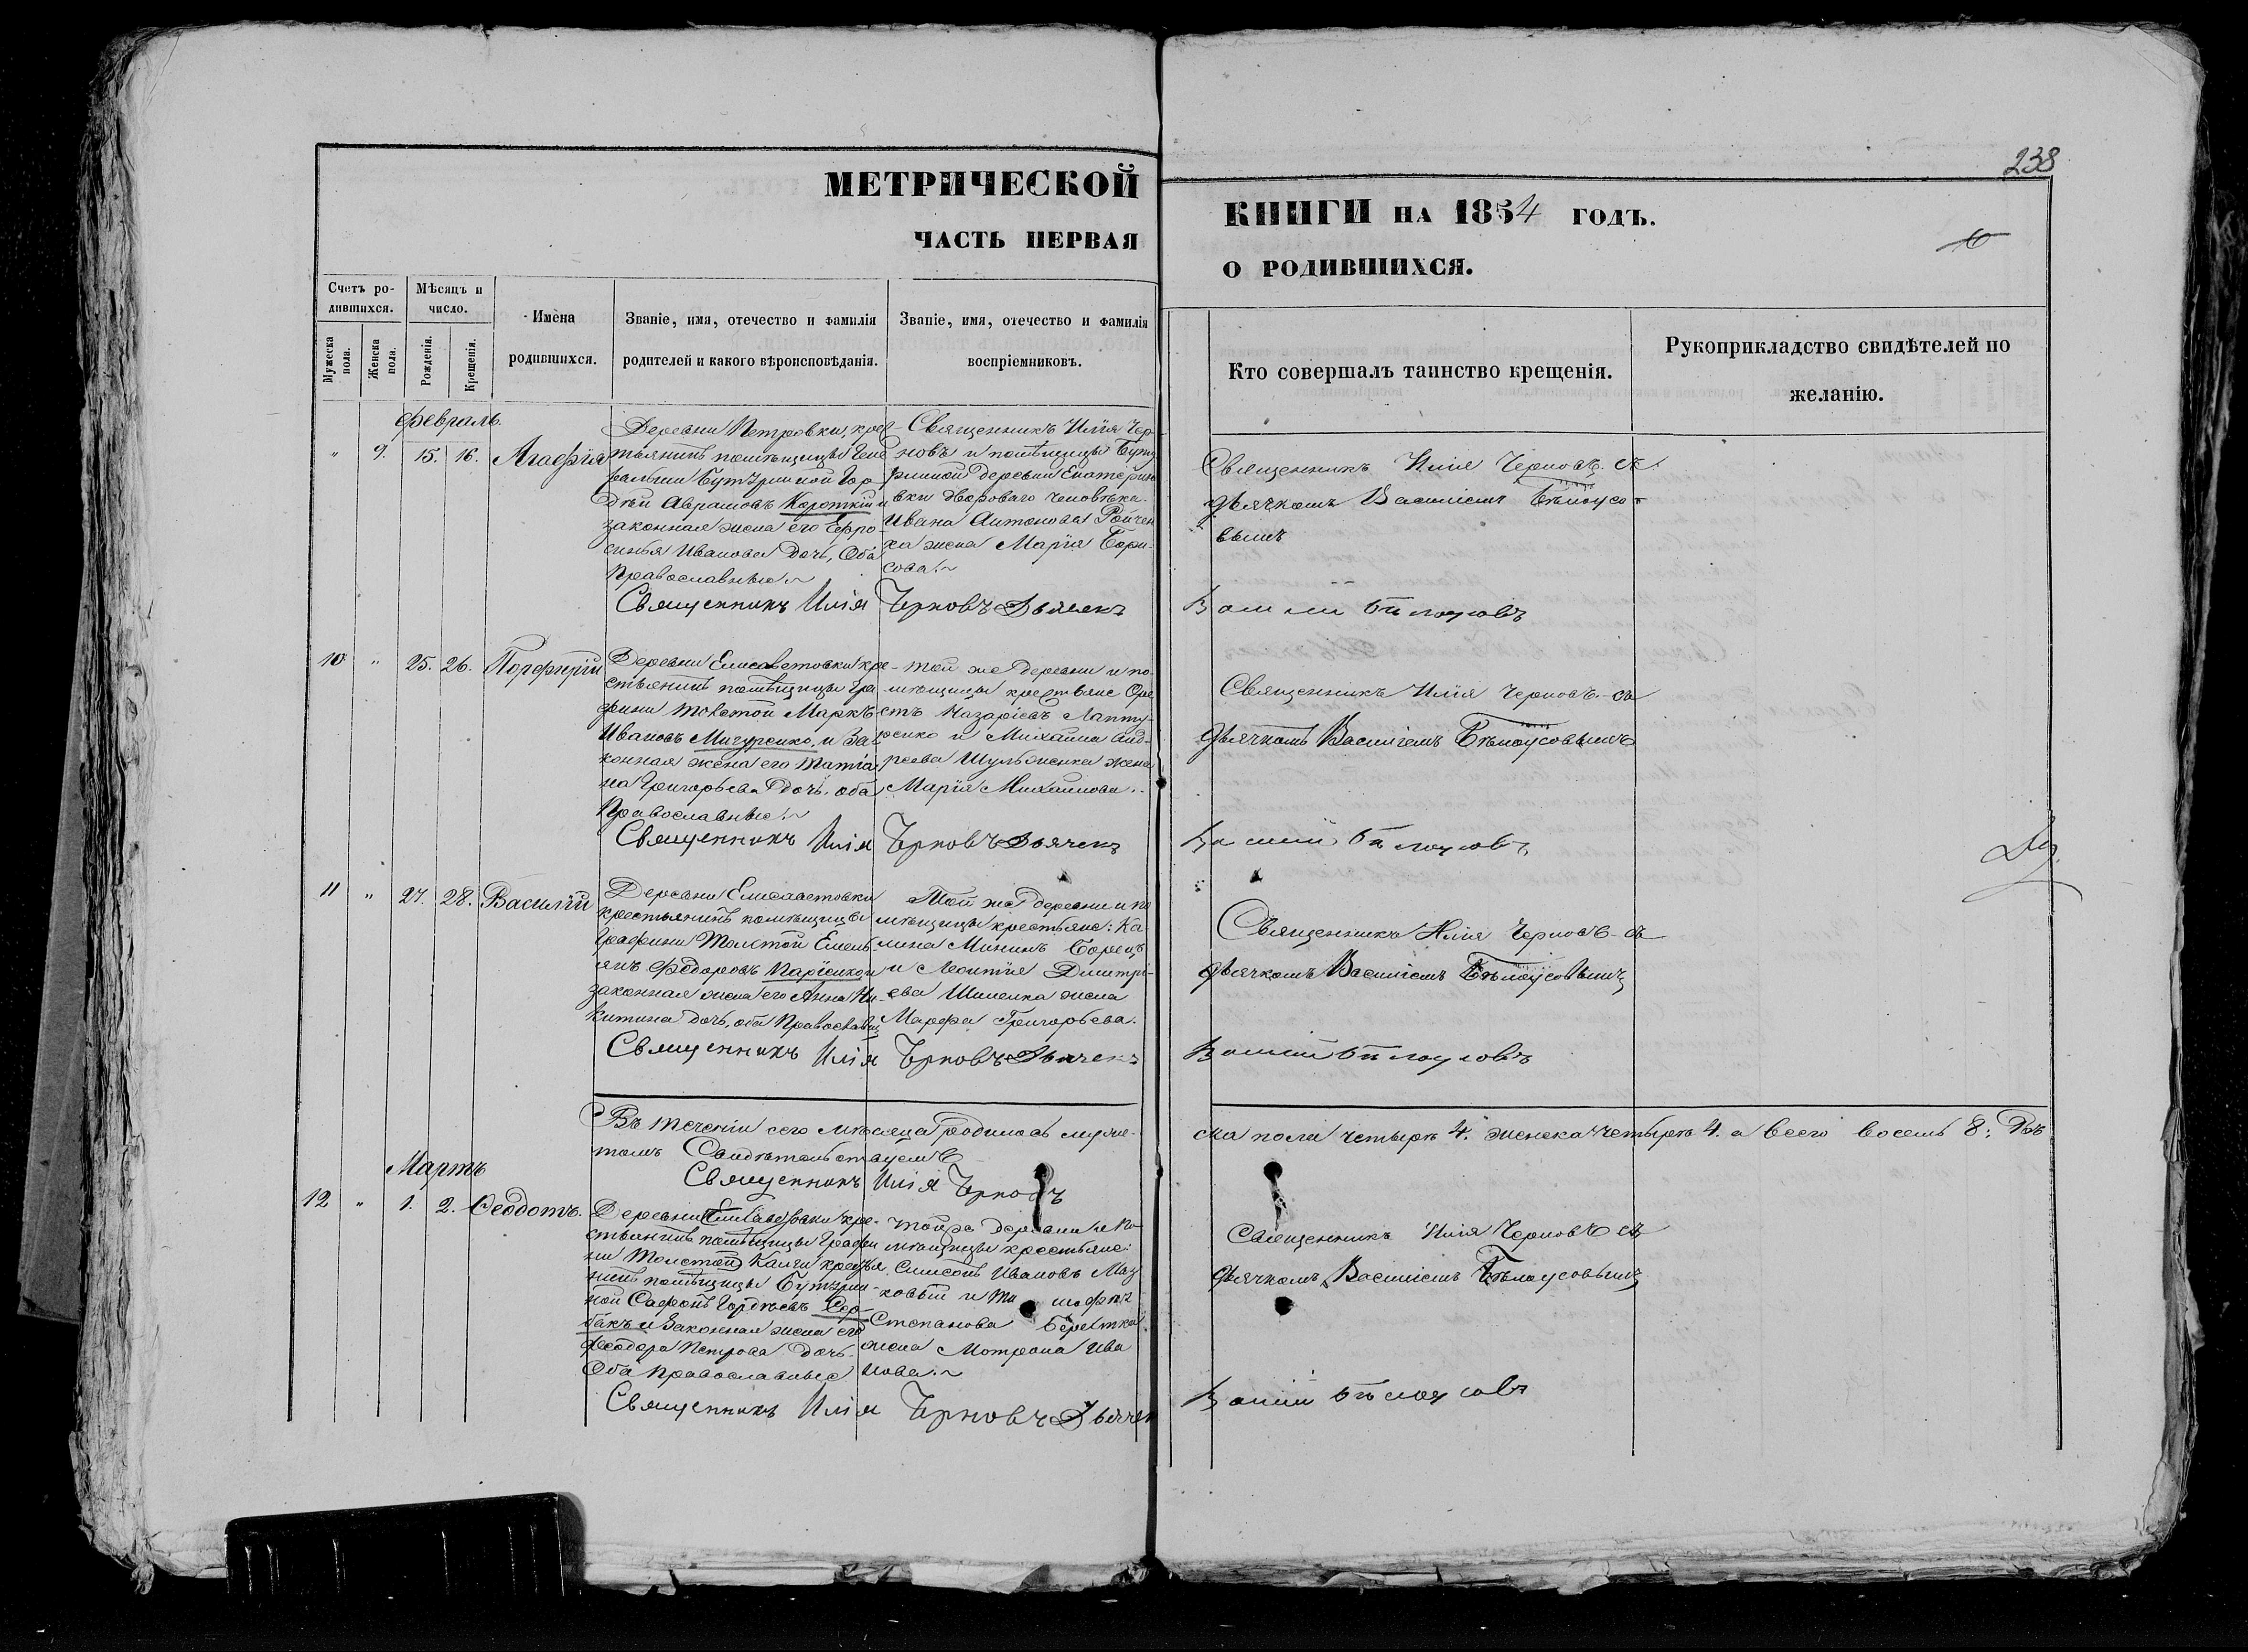 238
МЕТРИЧЕСКОЙ
КНИГИ НА 1854 ГОДЪ.
ЧАСТЬ ПЕРВАЯ
О РОДИВШИХСЯ.
Счетъ ро-
дившихся.
Мужеска
пола.
Женска
пола.
Мѣсяцъ и
число.
Рожденія.
Крещенія.
Имена
родившихся.
Званіе, имя, отечество и фамилія
родителей и какого вѣроисповѣданія.
Званіе, имя, отечество и фамилія
воспріемниковъ.
Кто совершалъ таинство крещенія.
Рукоприкладство свидѣтелей по
желанію.
Февраль.
" 9. 15. 16. Агафія
Деревни Петровки, крес-
тьянинъ помѣщицы Гене
ральши Бутурлиной Гор
дѣй Аврамовъ Короткій и
законная жена его Ефро-
синья Иванова дочь, Оба
Православные.
Священникъ Илія Чер-
новъ и помѣщицы Буту
рлиной деревни Екатерин
вки двороваго человѣка
Ивана Антонова
ка жена Марія Бори-
сова.
Священникъ Илія Черновъ съ
дьячкомъ Василіемъ Бѣлоусо-
вымъ
Священникъ Илія Черновъ Дьячекъ Василій Бѣлоусовъ
10 " 25. 26. Порфирій
Деревни Елисаветовки кре-
стьянинъ помѣщицы Гра
фини Толстой Маркъ
Ивановъ Мичуренко, и за
конная жена его Татіа
на Григорьева дочь. оба
Православные.
той же деревни и по-
мѣщицы крестьяне Оре
стъ Назаріевъ Лапту-
ренко и Михаила Анд-
реева Шульженка жена
Марія Михаилова.
Священникъ Илія Черновъ съ
дьячкомъ Василіемъ Бѣлоусовымъ
Священникъ Илія Черновъ Дьячекъ Василій Бѣлоусовъ
11 " 27. 28. Василій
Деревни Елисаветовки
крестьянинъ помѣщицы
Графини Толстой Емель
янъ Федоровъ и
законная жена его Анна Ни-
китина дочь, оба Православн
Той же деревни и по
мѣщицы крестьяне: Ка-
лина Мининъ Борецъ
и Леонтія Дмитрі-
ева жена
Марфа Григорьева.
Священникъ Илія Черновъ съ
дьячкомъ Василіемъ Бѣлоусовымъ
Священникъ Илія Черновъ Дьячекъ Василій Бѣлоусовъ
Въ теченіи сего мѣсяца родилось муже- ска пола четыре 4. женска четыре 4. а всего восемь 8: въ
томъ Свидѣтельствуемъ
Священникъ Илія Черновъ
Мартъ
12 " 1. 2. Ѳеодотъ.
Деревни Елисаветовки кре-
стьянинъ помѣщицы Графи
ни Толстой
нинъ помѣщицы Бутурли-
ной Сафонъ Гордѣевъ
и законная жена его
Ѳеодора Петрова дочь
Оба Православные
той же деревни и по
мѣщицы крестьяне:
Самсонъ Ивановъ
и
Степанова
жена Мотрона Ива
нова.
Священникъ Илія Черновъ съ
дьячкомъ Василіемъ Бѣлоусовымъ
Священникъ Илія Черновъ Дьячекъ Василій Бѣлоусовъ